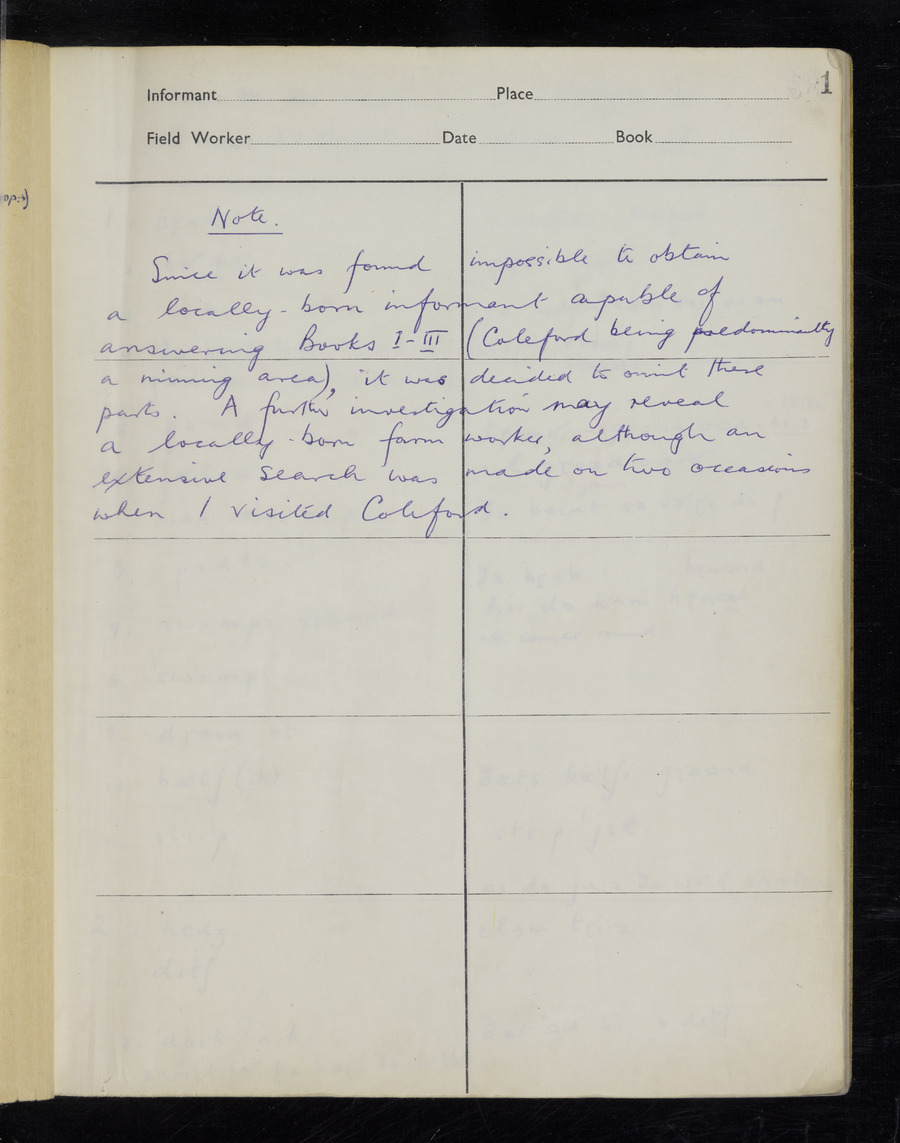 1
Informant Place
Field Worker Date Book
Note.
Since it was found impossible to obtain
a locally-born informant capable of
answering Books I-III (Coleford being predominantly
a mining area), it was decided to omit these
parts. A further investigation may reveal
a locally-born farm worker, although an
extensive search was made on two occasions
when I visited Coleford.